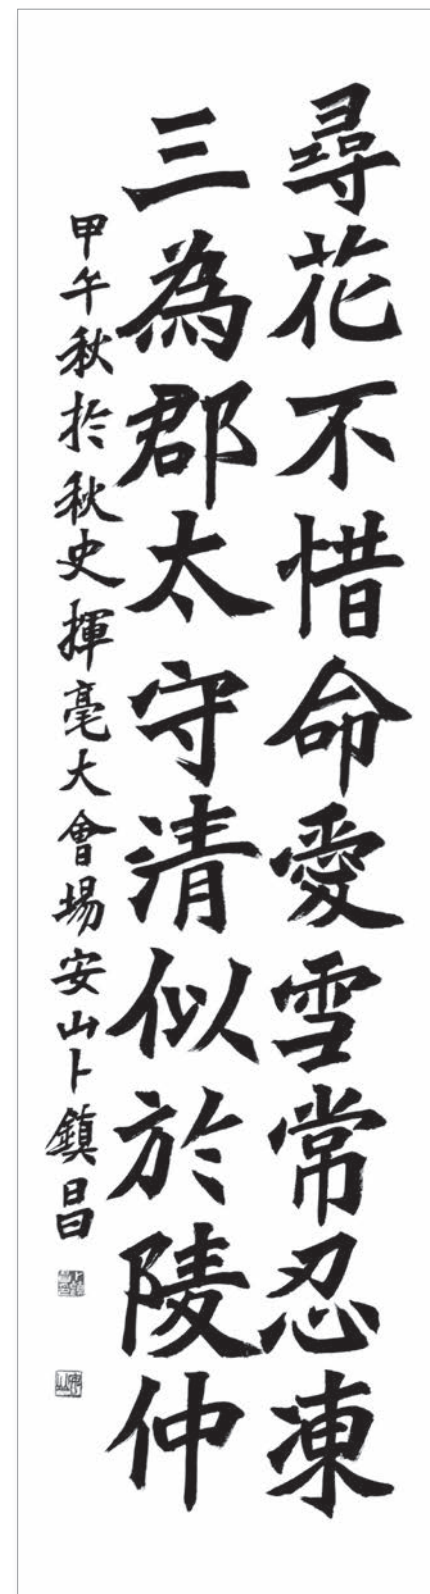 尋花不惜命愛雪常忍凍
三為郡太守清似於陵仲
甲午秋於秋史揮毫大會場安山卜鎮昌